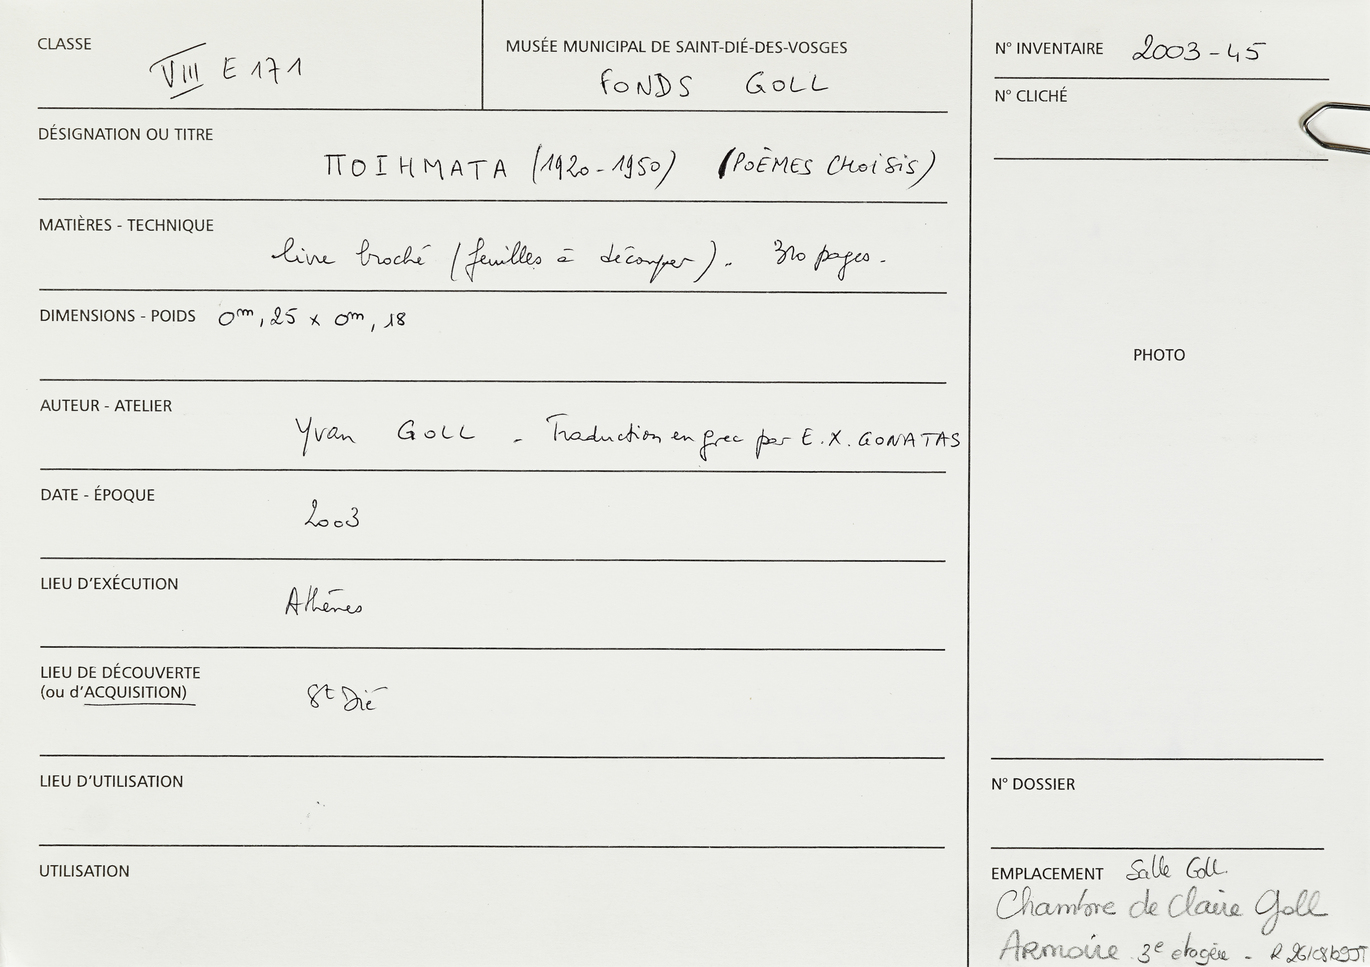 CLASSE
VIII E 171
MUSÉE MUNICIPAL DE SAINT-DIÉ-DES-VOSGES
FONDS GOLL
N° INVENTAIRE 2003-45
N° CLICHÉ
DÉSIGNATION OU TITRE
ΠΟΙΗΜΑΤΑ (1920-1950) (POÈMES CHOISIS)
MATIÈRES - TECHNIQUE
livre broché (feuilles à découper). 310 pages.
DIMENSIONS - POIDS 0m,25 x 0m,18
PHOTO
AUTEUR - ATELIER
Yvan GOLL - Traduction en grec par E.X. GONATAS
DATE - ÉPOQUE
2003
LIEU D'EXÉCUTION
Athènes
LIEU DE DÉCOUVERTE
(ou d'ACQUISITION)
St Dié
LIEU D'UTILISATION
N° DOSSIER
UTILISATION
EMPLACEMENT Salle Goll.
Chambre de Claire Goll
Armoire 3e etagère -